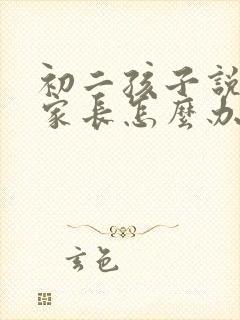 初二孩子説
家長怎麼办
玄色